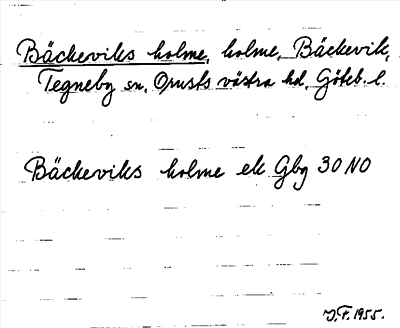 Bäckeviks holme, holme, Bäckevik,
Tegneby sn, Orusts västra hd, Göteb. l.
Bäckeviks holme ek Gbg 30 NO
J.F. 1955.